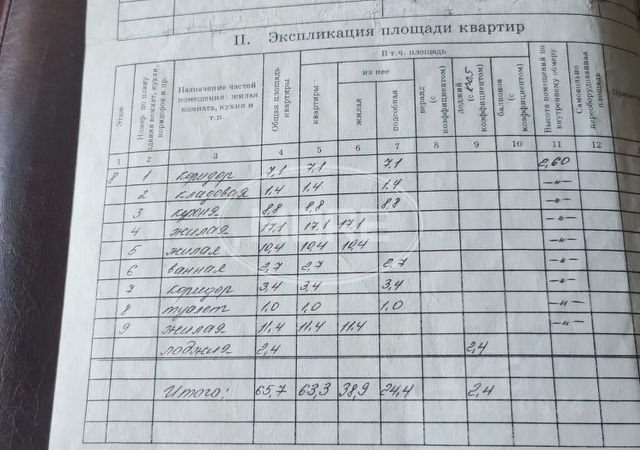 II. Экспликация площади квартир
Этаж
Номер по плану здания комнат, кухни, коридоров и пр.
Назначение частей помещения: жилая комната, кухня и т.п.
Общая площадь квартиры
В т.ч. площадь
квартиры
из нее
жилая
подсобная
веранд (с коэффициентом)
лоджий (с к=0,5 коэффициентом)
балконов (с коэффициентом)
Высота помещений по внутреннему обмеру
Самовольно переоборудованная площадь
1 2 3 4 5 6 7 8 9 10 11 12
8 1 коридор 7,1 7,1 7,1 2,60
2 кладовая 1,4 1,4 1,4 —"—
3 кухня 8,8 8,8 8,8 —"—
4 жилая 17,1 17,1 17,1 —"—
5 жилая 10,4 10,4 10,4 —"—
6 ванная 2,7 2,7 2,7 —"—
7 коридор 3,4 3,4 3,4 —"—
8 туалет 1,0 1,0 1,0 —"—
9 жилая 11,4 11,4 11,4 —"—
лоджия 2,4 2,4
Итого: 65,7 63,3 38,9 24,4 2,4